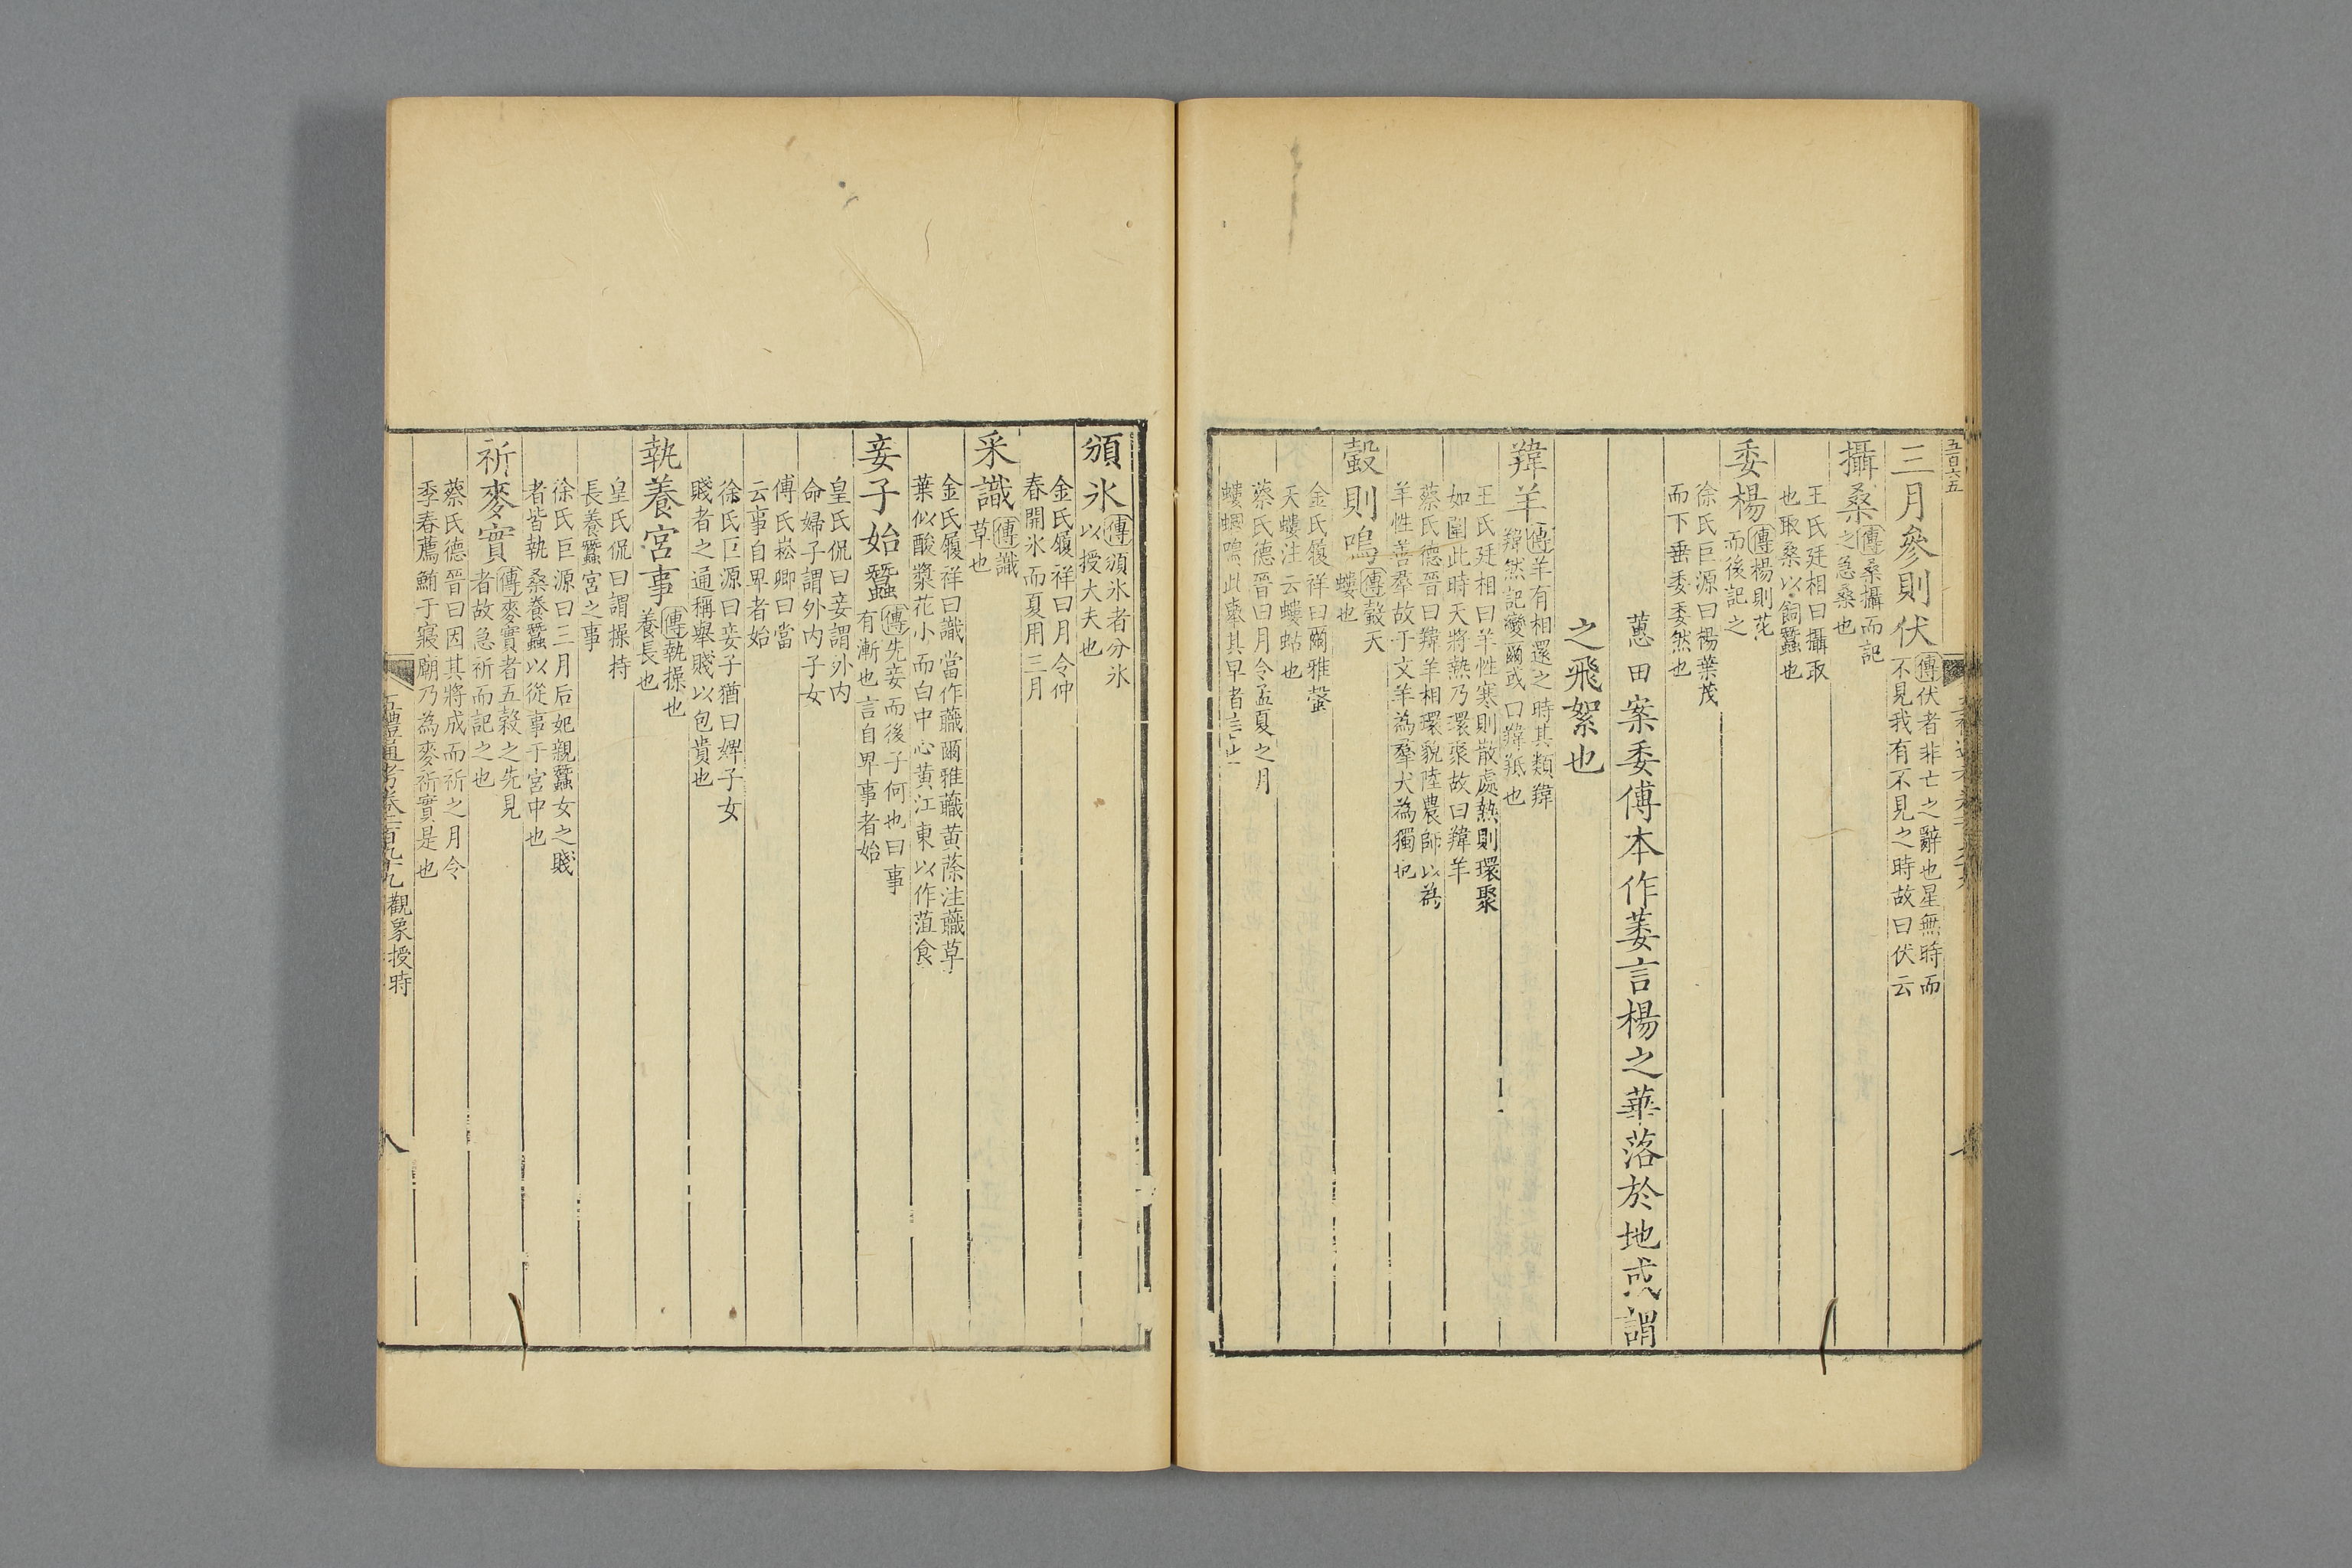 五百六五
三月參則伏傳伏者非亡之辭也星無時而
不見我有不見之時故曰伏云
攝桑傳桑攝而記
之急桑也
王氏廷相曰攝取
也取桑以飼蠶也
委楊傳楊則花
而後記之
徐氏巨源曰楊葉茂
而下垂委委然也
蕙田案委傅本作萎言楊之華落於地或謂
之飛絮也
羵羊傳羊有相還之時其類羵
羵然記變爾或曰羵羝也
王氏廷相曰羊性寒則散處熱則環聚
如圍此時天將熱乃環聚故曰羵羊
蔡氏德晉曰羵羊相環貌陸農師以為
羊性善羣故于文羊為羣犬為獨也
螜則鳴傳螜天
螻也
金氏履祥曰爾雅螜
天螻注云螻蛄也
蔡氏德晉曰月令孟夏之月
螻蟈鳴此舉其早者言之
頒氷傳頒氷者分氷
以授大夫也
金氏履祥曰月令仲
春開氷而夏用三月
采識傳識
草也
金氏履祥曰識當作蘵爾雅蘵黃蒢注蘵草
葉似酸漿花小而白中心黃江東以作菹食
妾子始蠶傳先妾而後子何也曰事
有漸也言自卑事者始
皇氏侃曰妾謂外内
命婦子謂外内子女
傅氏崧卿曰當
云事自卑者始
徐氏巨源曰妾子猶曰婢子女
賤者之通稱舉賤以包貴也
執養宮事傳執操也
養長也
皇氏侃曰謂操持
長養蠶宮之事
徐氏巨源曰三月后妃親蠶女之賤
者皆執桑養蠶以從事于宮中也
祈麥實傳麥實者五穀之先見
者故急祈而記之也
蔡氏德晉曰因其將成而祈之月令
季春薦鮪于寢廟乃為麥祈實是也
五禮通考卷一百九十九 觀象授時
八